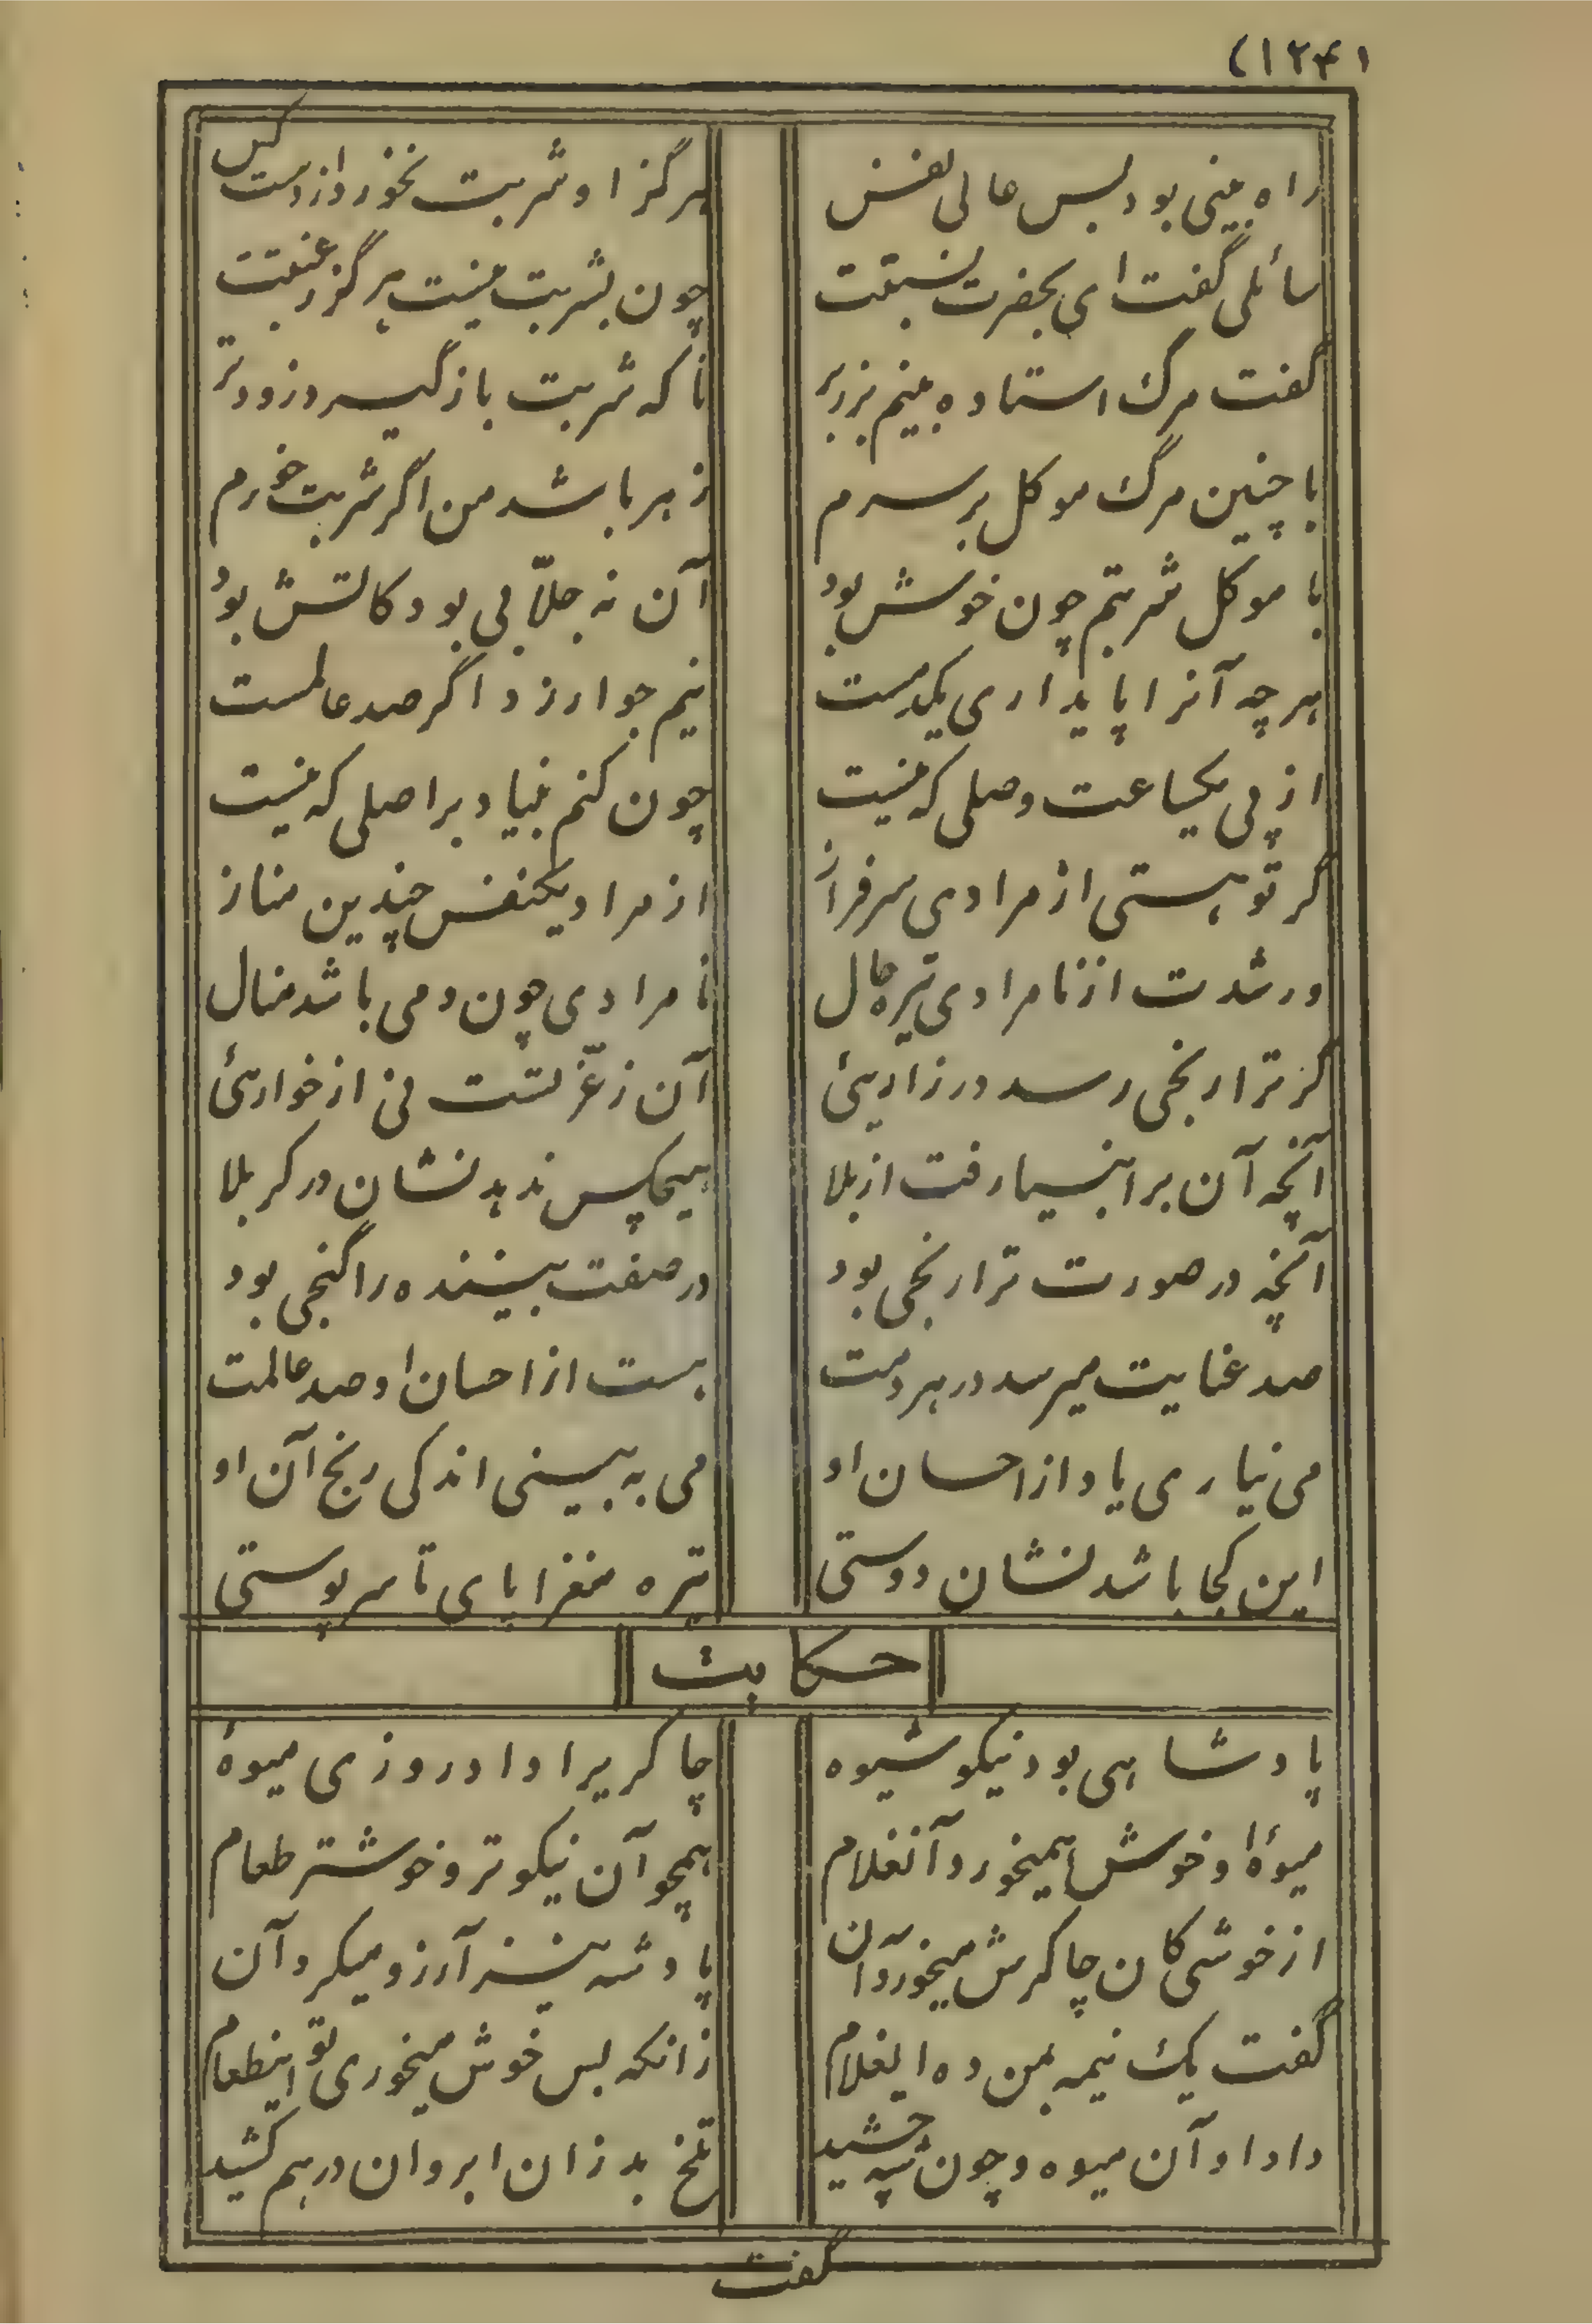 (۱۲۴)
راه بینی بود بس عالی نفس هرگز او شربت نخورد از دست کس
سائلی گفت ای بحضرت نسبتت چون بشربت نیست هرگز رغبتت
گفت مرگ استاده بینم بر زبر تا که شربت باز گیرد زودتر
با چنین مرگ موکل بر سرم زهر باشد من اگر شربت خورم
با موکل شربتم چون خوش بود آن نه جلّابی بود کاتش بود
هر چه آنرا پایداری یکدمست نیم جو ارزد اگر صد عالمست
از پی یکساعت وصلی که نیست چون کنم بنیاد بر اصلی که نیست
گر تو هستی از مرادی سرفراز از مراد یکنفس چندین مناز
ور شدت از نامرادی تیره حال نامرادی چون دمی باشد منال
گر ترا رنجی رسد در زاریئ آن ز عزّ تست نی از خواریئ
آنچه آن بر انبیا رفت از بلا هیچکس ندهد نشان در کربلا
آنچه در صورت ترا رنجی بود در صفت بیننده را گنجی بود
صد عنایت میرسد در هر دمت هست از احسان او صد عالمت
می نیاری یاد از احسان او می به بینی اندکی رنج آن او
این کجا باشد نشان دوستی تیره مغزا پای تا سر پوستی
حکایت
پادشاهی بود نیکو شیوه چاکریرا داد روزی میوهٔ
میوهٔ او خوش همیخورد آنغلام همچو آن نیکوتر و خوشتر طعام
از خوشی کان چاکرش میخورد آن پادشه نیز آرزو میکرد آن
گفت یک نیمه بمن ده ایغلام زانکه بس خوش میخوری تو اینطعام
داد او آن میوه و چون شه چشید تلخ بد زان ابروان درهم کشید
گفت